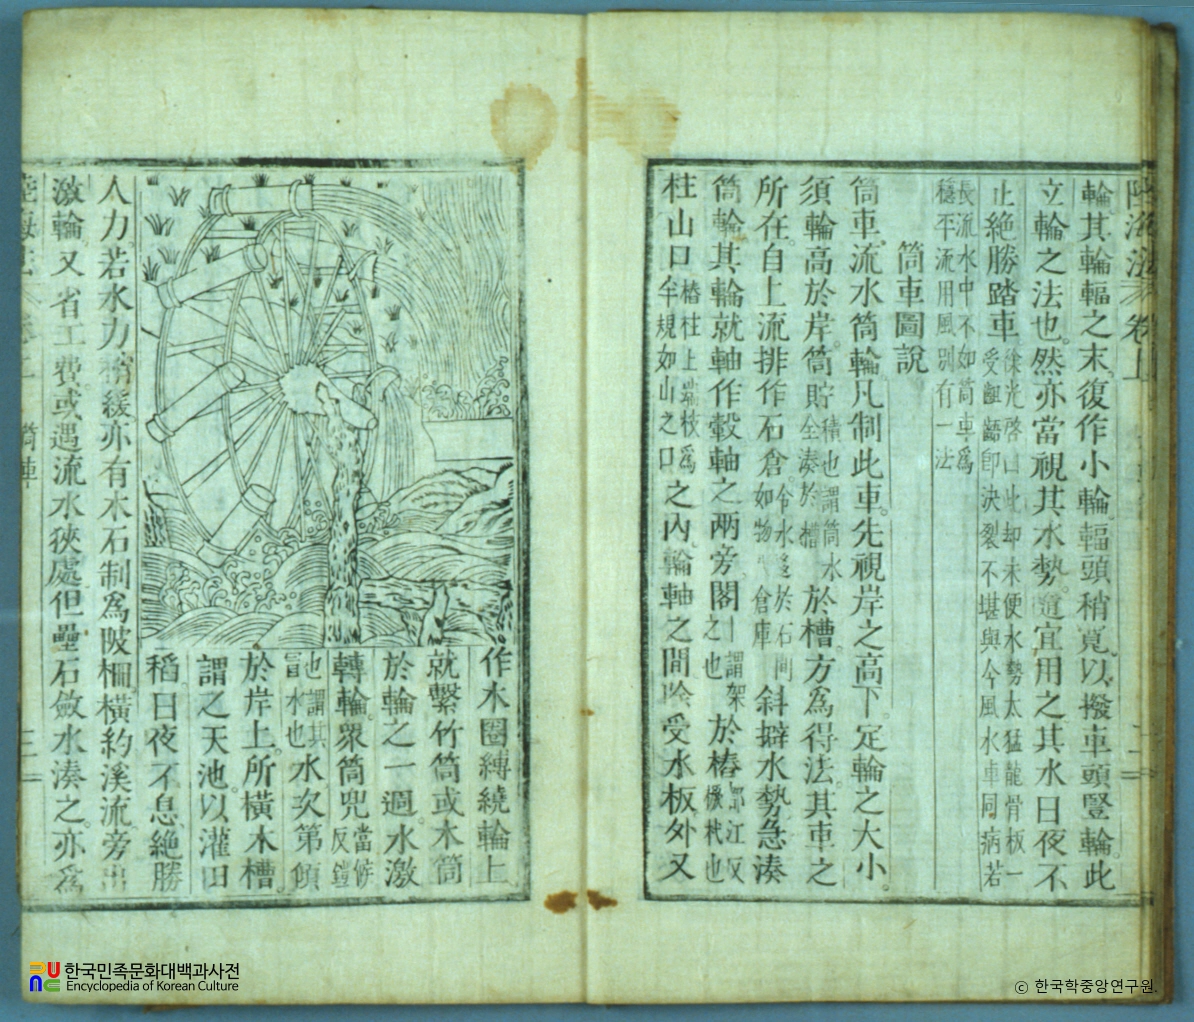 陸海法 卷上
輪其輪輻之末復作小輪輻頭稍寬以撥車頭豎輪此
立輪之法也然亦當視其水勢隨宜用之其水日夜不
止絶勝踏車
徐光啓曰此却未便水勢太猛龍骨板一
受齟齬即决裂不堪與今風水車同病若
長流水中不如筒車爲
穩平流用風別有一法
筒車圖說
筒車流水筒輪凡制此車先視岸之高下定輪之大小
須輪高於岸筒貯
積也謂筒水
全湊於槽
於槽方爲得法其車之
所在自上流排作石倉
令水逐於石間
如物 倉庫
斜擗水勢急湊
筒輪其輪就軸作轂軸之兩旁閣
謂架
之也
於樁
都江反
橛杙也
柱山口
樁柱上端枝爲
牟規如山之口
之內輪軸之間 受水板外又
作木圈縛繞輪上
就繫竹筒或木筒
於輪之一週水激
轉輪衆筒兜
當候反鎧
也謂其
冒水也
水次第傾
於岸上所橫木槽
謂之天池以灌田
稻日夜不息絶勝
人力若水力稍緩亦有木石制爲陂柵橫約溪流旁出
激輪又省工費或遇流水狹處但壘石斂水湊之亦爲
한국민족문화대백과사전
Encyclopedia of Korean Culture
© 한국학중앙연구원.